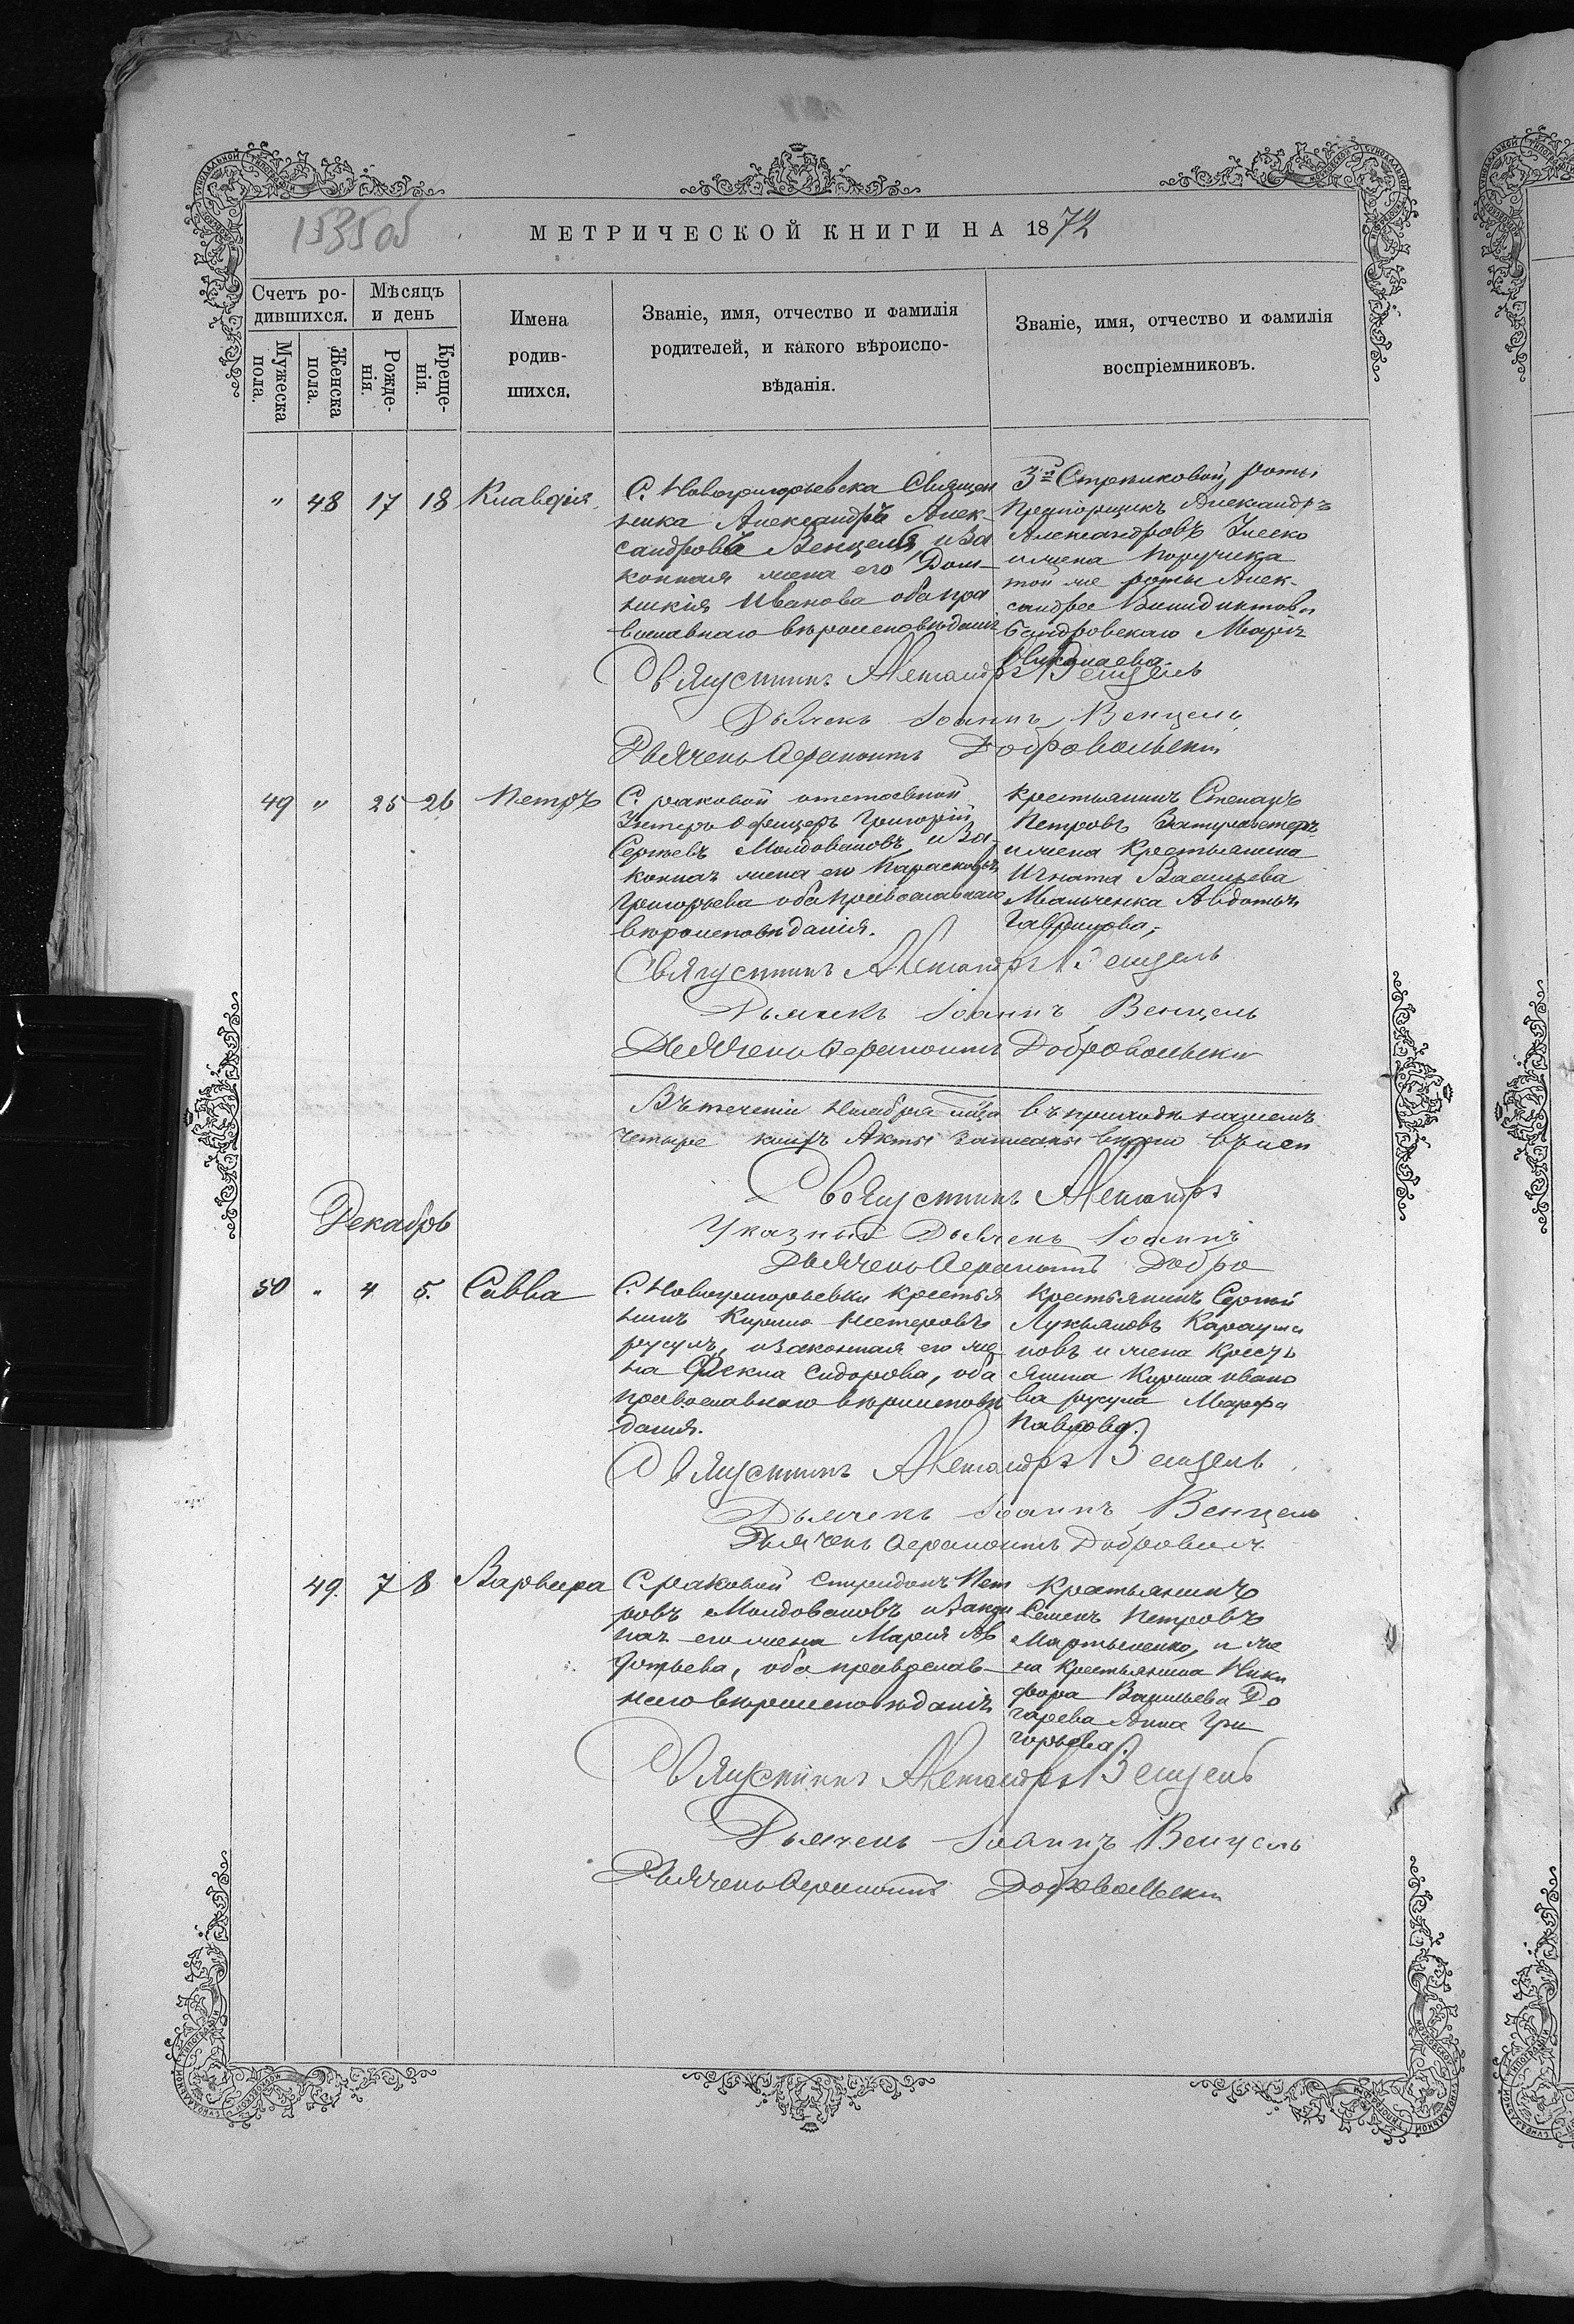 153об
МЕТРИЧЕСКОЙ КНИГИ НА 1872
Счетъ ро-
дившихся.
Мѣсяцъ
и день
Мужеска
пола.
Женска
пола.
Рожде-
нія.
Креще-
нія.
Имена
родив-
шихся.
Званіе, имя, отчество и фамилія
родителей, и какого вѣроиспо-
вѣданія.
Званіе, имя, отчество и фамилія
воспріемниковъ.
" 48 17 18 Клавдія
С. Новогригорьевска Священ
ника Александръ Алек-
сандровъ Венцель и За
конная жена его Дом-
никія Иванова оба пра
вославнаго вѣроисповѣданія
3й Стрѣлковой роты
Прапорщикъ Александръ
Александровъ
и жена Поручика
той же роты Алек-
сандра
Марія
Николаева.
Священникъ Александръ Венцель
Дьячекъ Іоаннъ Венцель
Дьячекъ Ѳерапонтъ Добровольскій
49 " 25 26 Петръ
С. Раковой отставной
Унтеръ Офицеръ Григорій
Сергѣевъ Молдовановъ, и За-
конная жена его Парасковія
Григорьева оба православнаго
вѣроисповѣданія.
Крестьянинъ Степанъ
Петровъ
и жена Крестьянина
Игната Васильева
Мальченка Авдотья
Гаврилова,
Священникъ Александръ Венцель
Дьячекъ Іоаннъ Венцель
Дьячекъ Ѳерапонтъ Добровольскій
Въ теченіи Ноября мца въ приходѣ нашемъ
четыре Акты записаны вѣрно въ чем
Священникъ Александръ
Указный Дьячекъ Іоаннъ
Дьячекъ Ѳерапонтъ Добро
Декабрь
50 " 4 5. Савва
С. Новогригорьевки крестья
нинъ Кирило Нестеровъ
русулъ, и законная его же
на Фекла Сидорова, оба
православнаго вѣроисповѣ
данія.
Крестьянинъ Сергѣй
Лукьяновъ Карауша
новъ и жена Кресть
янина Кирила Ивано
ва русула Марфа
Павлова.
Священникъ Александръ Венцель
Дьячекъ Іоаннъ Венцель
Дьячекъ Ѳерапонтъ Добровольс
49. 7 8 Варвара
С. раковой Спиридонъ Пет
ровъ Молдовановъ и закон
ная его жена Марія Ав
дотьева, оба православ-
наго вѣроисповѣданія
Крестьянинъ
Семенъ Петровъ
Мартыненко, и же
на Крестьянина Ники
фора Васильева До
гарева Анна Гри
горьева.
Священникъ Александръ Венцель
Дьячекъ Іоаннъ Венцель
Дьячекъ Ѳерапонтъ Добровольскій